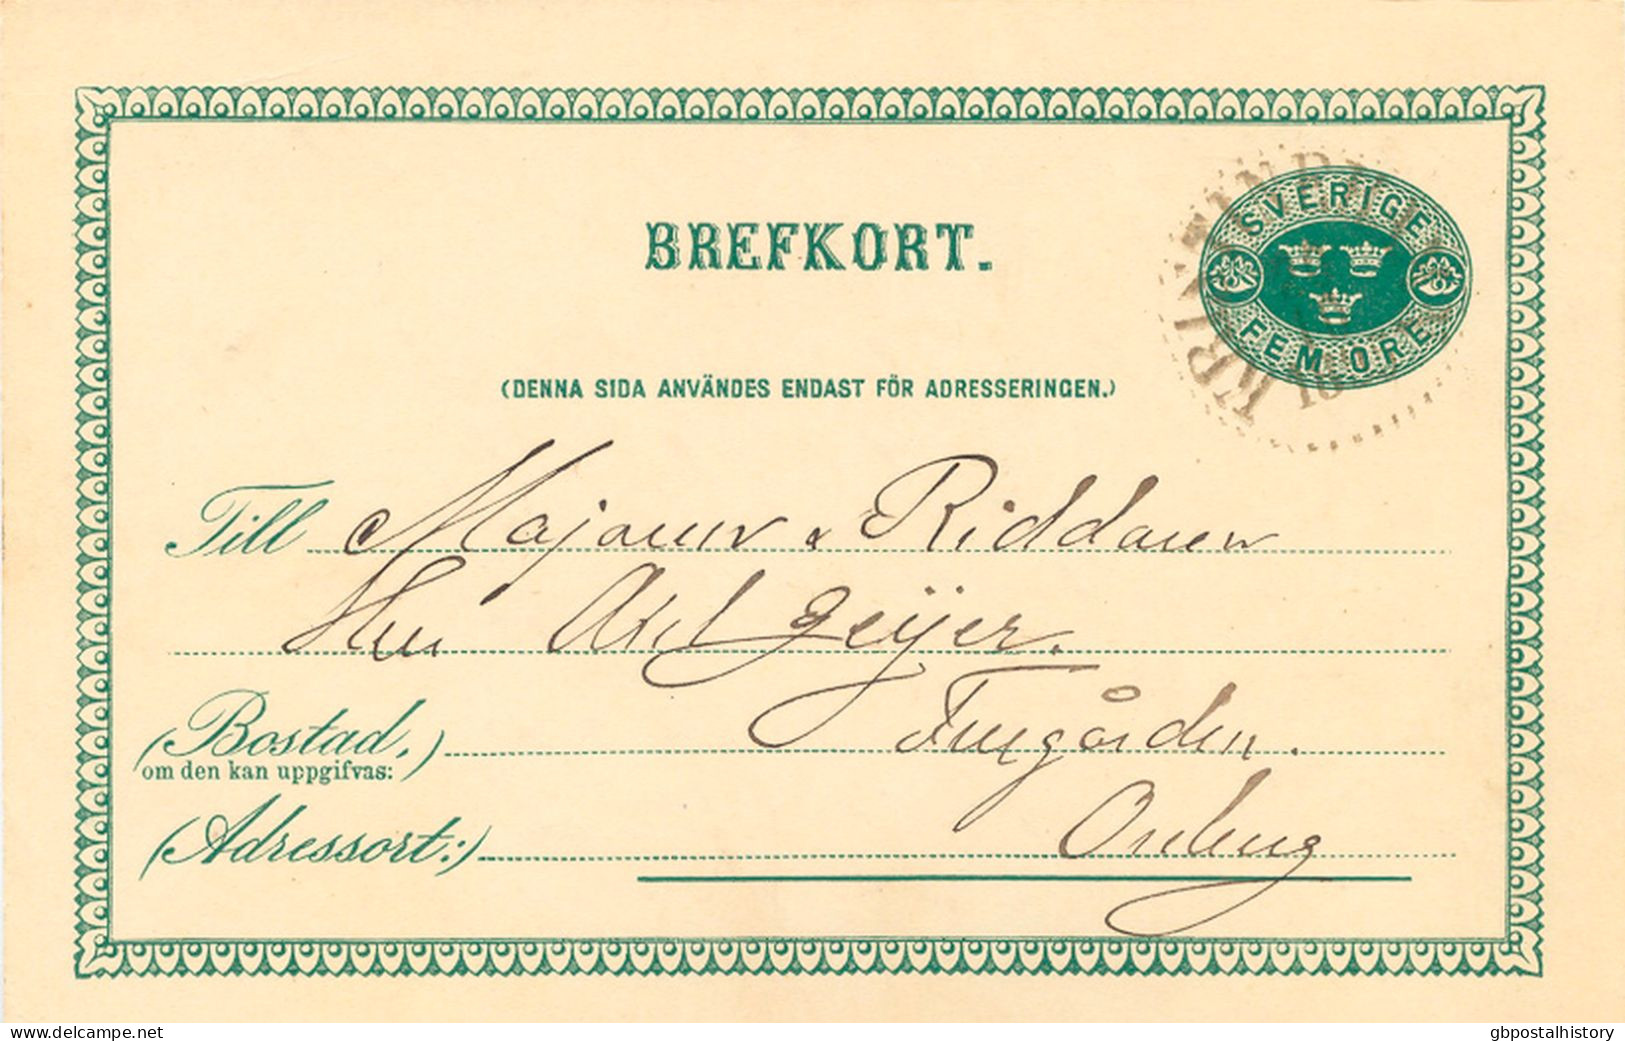 BREFKORT.
SVERIGE
FEM ÖRE
(DENNA SIDA ANVÄNDES ENDAST FÖR ADRESSERINGEN.)
Till Majoren & Riddaren
Herr Axel Geijer.
(Bostad,)
om den kan uppgifvas:
(Adressort:)
delcampe.net
gbpostalhistory